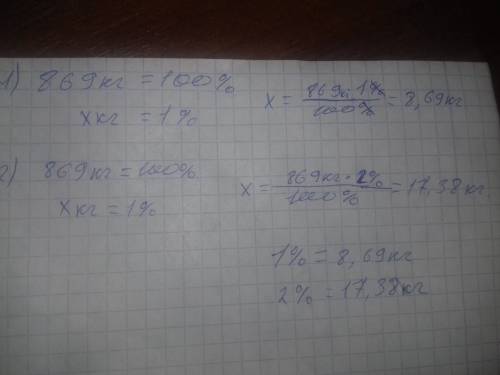 1) 869кг = 100%
xкг = 1%
x = 869кг · 1% / 100% = 8,69кг
2) 869кг = 100%
xкг = 1%
x = 869кг · 2% / 100% = 17,38кг
1% = 8,69кг
2% = 17,38кг